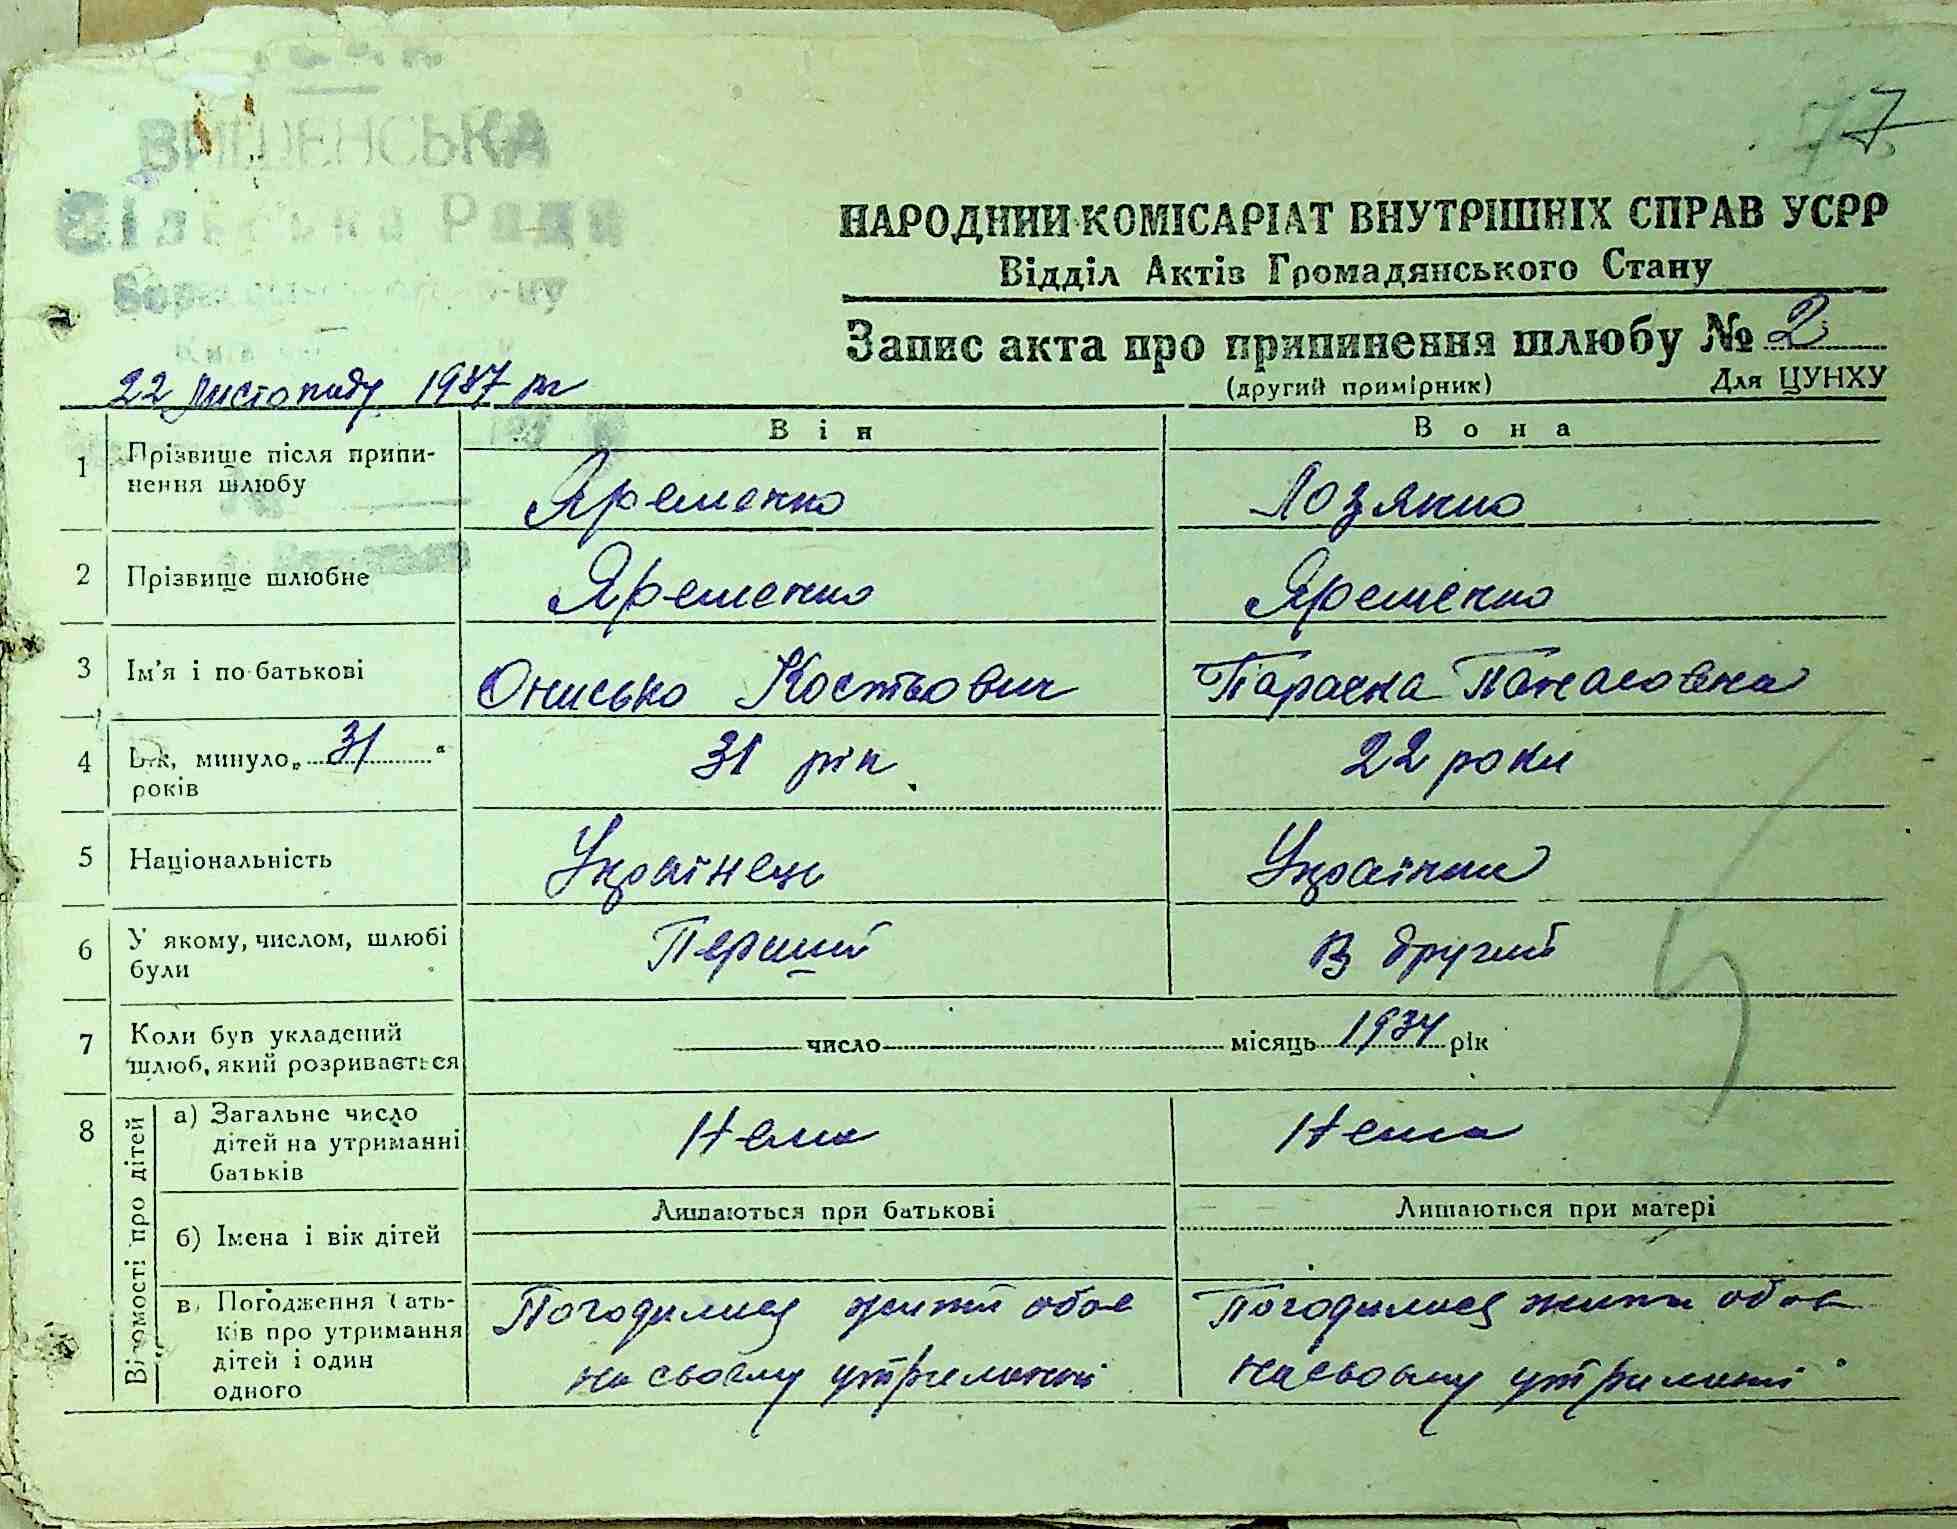 77
ВИШЕНСЬКА
Сільська Рада
НАРОДНИЙ КОМІСАРІАТ ВНУТРІШНІХ СПРАВ УСРР
Відділ Актів Громадянського Стану
Запис акта про припинення шлюбу № 2
(другий примірник) Для ЦУНХУ
22 листопаду 1937 р
Він Вона
1 Прізвище після припи-
нення шлюбу Яременко Лозянко
2 Прізвище шлюбне Яременко Яременко
3 Ім'я і по-батькові Онисько Костьович Параска Панасовна
4 Вік, минуло „31“ 31 рік 22 роки
років
5 Національність Українець Українка
6 У якому, числом, шлюбі Перший В другий
були
7 Коли був укладений число місяць 1934 рік
шлюб, який розривається
8 Відомості про дітей
а) Загальне число Нема Нема
дітей на утриманні
батьків
Лишаються при батькові Лишаються при матері
б) Імена і вік дітей
в) Погодження бать- Погодилися жити обоє Погодилися жити обоє
ків про утримання
дітей і один на своєму утриманні на своєму утриманні
одного